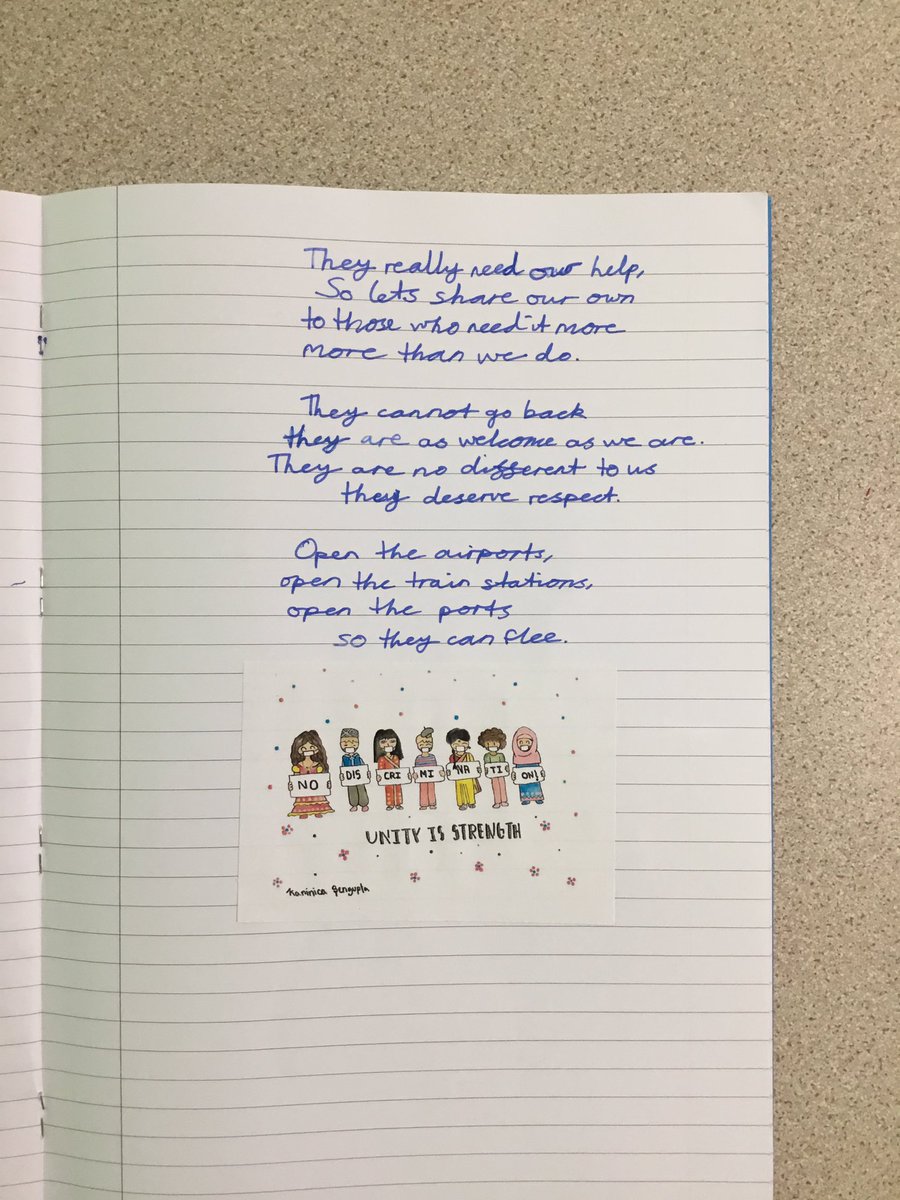 They really need our help,
So lets share our own
to those who need it more
more than we do.
They cannot go back
they are as welcome as we are.
They are no different to us
they deserve respect.
Open the airports,
open the train stations,
open the ports
so they can flee.
NO DIS CRI MI NA TI ON!
UNITY IS STRENGTH
Kaninica Sengupta